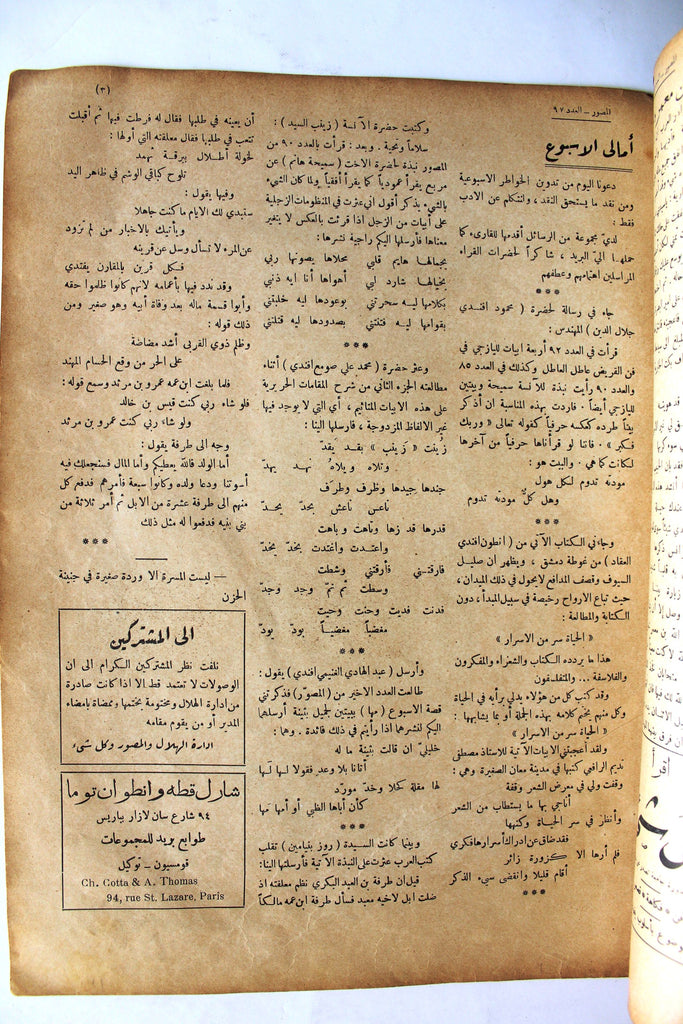 المصور – العدد ٩٧
(٣)
أمالى الاسبوع
دعونا اليوم من تدوين الخواطر الاسبوعية
ومن نقد ما يستحق النقد ، ولنتكلم عن الادب
فقط :
لديّ مجموعة من الرسائل أقدمها للقارىء كما
حملها الىّ البريد ، شاكراً لحضرات القراء
المراسلين اهتمامهم وعطفهم
***
جاء في رسالة لحضرة ( محمود افندي
جلال الدين ) المهندس :
قرأت في العدد ٩٢ أربعة ابيات لليازجي في
فن القريض عاطل العاطل وكذلك في العدد ٨٥
والعدد ٩٠ رأيت نبذة للآنسة سميحة وبيتين
لليازجي أيضاً . فاردت بهذه المناسبة ان أذكر
بيتاً طرده كعكسه حرفياً كقوله تعالى « وربك
فكبر » . فاننا لو قرأناها حرفياً من آخرها
لكانت كما هي . والبيت هو :
مودته تدوم لكل هول
وهل كلٌ مودته تدوم
***
وجاءني الكتاب الآتي من ( انطون افندي
العقاد ) من غوطة دمشق ، ويظهر ان صليل
السيوف وقصف المدافع لا يحول في ذلك الميدان ،
حيث تباع الارواح رخيصة في سبيل المبدأ ، دون
الكتابة والمطالعة :
« الحياة سر من الاسرار »
هذا ما يردده الكتاب والشعراء والمفكرون
والفلاسفة ... والمتفلسفون
وقد كتب كل من هؤلاء يدلي برأيه في الحياة
وكل منهم يختم كلامه بهذه الجملة أو بما يشابهها :
« الحياة سر من الاسرار »
ولقد أعجبتني الابيات الآتية للاستاذ مصطفى
نديم الرافعي كتبها في مدينة معان الصغيرة وهي :
وقفت ولي في معرض الشعر وقفة
أناجي بها ما يستطاب من الشعر
وأنظر في سر الحياة وكنهها
فقد ضاق عن ادراك أسرارها فكري
فلم أرها الا كزورة زائر
أقام قليلا وانقضى سيء الذكر
***
وكتبت حضرة الآنسة ( زينب السيد ) :
سلاماً وتحية . وبعد : قرأت بالعدد ٩٠ من
المصور نبذة لحضرة الاخت ( سميحة هانم ) عن
مربع يقرأ عمودياً كما يقرأ أفقياً ولما كان الشيء
بالشيء يذكر أقول انى عثرت في المنظومات الزجلية
على أبيات من الزجل اذا قرئت بالعكس لا يتغير
معناها فأرسلها اليكم راجية نشرها :
بجمالها هايم قلبي سحلاها يصونها ربي
بخيالها شارد لبي أهواها أنا ايه ذنبي
بكلامها ليه سحرتني بوعودها ليه خليتني
بقوامها ليه فتنتني بصدودها ليه قتلتني
***
وعثر حضرة ( محمد علي صومع افندي ) أثناء
مطالعته الجزء الثاني من شرح المقامات الحريرية
على هذه الابيات المتائيم ، أي التي لا يوجد فيها
غير الالفاظ المزدوجة ، فارسلها الينا :
زُينت « زَينب » بقد يقدّ
وتلاه ويلاه نهد يهدّ
جندها جيدها وظرف وطرف
ناعس ناعش بحدّ يحدّ
قدرها قد زها وتاهت وباهت
واعتدت واغتدت بخدّ يخدّ
فارقتني فأرقتني وشطت
وسطت ثم نمّ وجد وجدّ
فدنت فديت وحنت وحيت
مغضباً مغضياً بودّ يودّ
***
وأرسل ( عبد الهادي الغنيمي افندي ) يقول :
طالعت العدد الاخير من ( المصوّر ) فذكرتني
قصة الاسبوع ( مها ) ببيتين لجميل بثينة أرسلهما
اليكم لنشرهما اذا رأيتم في ذلك فائدة . وهما :
خليليّ ان قالت بثينة ما له
أتانا بلا وعد فقولا لها لها
لها مقلة كحلا وخدّ مورّد
كأن أباها الظبي أو أمها مها
***
وبينما كانت السيدة ( روز بنيامين ) تقلب
كتب العرب عثرت على النبذة الآتية فأرسلتها الينا :
قيل ان طرفة بن العبد البكري نظم معلقته اذ
ضلت ابل لاخيه معبد فسأل طرفة ابن عمه مالكاً
أن يعينه في طلبها فقال له فرطت فيها ثم أقبلت
تتعب في طلبها فقال معلقته التي أولها :
لخولة أطلال ببرقة ثهمد
تلوح كباقي الوشم في ظاهر اليد
وفيها يقول :
ستبدي لك الايام ما كنت جاهلا
ويأتيك بالاخبار من لم تزود
عن المرء لا تسأل وسل عن قرينه
فكل قرين بالمقارن يقتدي
وقد ندد فيها بأعمامه لانهم كانوا ظلموا حقه
وأبوا قسمة ماله بعد وفاة أبيه وهو صغير ومن
ذلك قوله :
وظلم ذوي القربى أشد مضاضة
على الحر من وقع الحسام المهند
فلما بلغت ابن عمه عمرو بن مرثد وسمع قوله :
فلو شاء ربي كنت قيس بن خالد
ولو شاء ربي كنت عمرو بن مرثد
وجه الى طرفة يقول :
أما الولد فالله يعطيكم وأما المال فسنجعلك فيه
أسوتنا ودعا ولده وكانوا سبعة فأمرهم فدفع كل
منهم الى طرفة عشرة من الابل ثم أمر ثلاثة من
بني بنيه فدفعوا له مثل ذلك
***
— ليست المسرة الا وردة صغيرة في جنينة
الحزن
الى المشتركين
نلفت نظر المشتركين الكرام الى ان
الوصولات لا تعتمد قط الا اذا كانت صادرة
من ادارة الهلال ومختومة بختمها وممضاة بامضاء
المدير أو من يقوم مقامه
ادارة الهلال والمصور وكل شيء
شارل قطه وانطوان توما
٩٤ شارع سان لازار بباريس
طوابع بريد للمجموعات
قومسيون – توكيل
Ch. Cotta & A. Thomas
94, rue St. Lazare, Paris